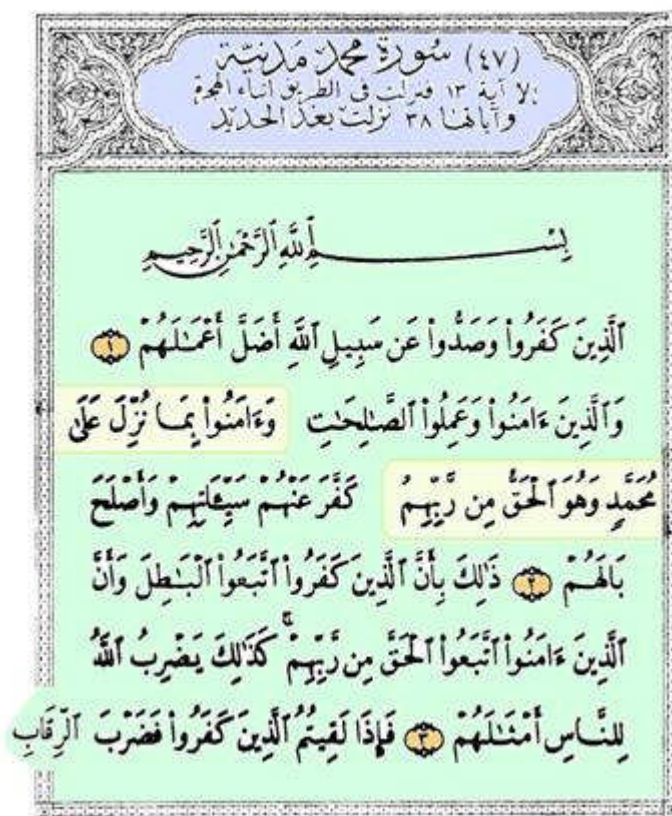 (٤٧) سُورَة مُحَمَّد مَدَنِيَّة
إلا آية ١٣ فنزلت فى الطريق اثناء الهجرة
وآياتها ٣٨ نزلت بعد الحديد
بِسْمِ ٱللَّهِ ٱلرَّحْمَٰنِ ٱلرَّحِيمِ
ٱلَّذِينَ كَفَرُوا۟ وَصَدُّوا۟ عَن سَبِيلِ ٱللَّهِ أَضَلَّ أَعْمَٰلَهُمْ ١
وَٱلَّذِينَ ءَامَنُوا۟ وَعَمِلُوا۟ ٱلصَّٰلِحَٰتِ وَءَامَنُوا۟ بِمَا نُزِّلَ عَلَىٰ
مُحَمَّدٍ وَهُوَ ٱلْحَقُّ مِن رَّبِّهِمْ كَفَّرَ عَنْهُمْ سَيِّـَٔاتِهِمْ وَأَصْلَحَ
بَالَهُمْ ٢ ذَٰلِكَ بِأَنَّ ٱلَّذِينَ كَفَرُوا۟ ٱتَّبَعُوا۟ ٱلْبَٰطِلَ وَأَنَّ
ٱلَّذِينَ ءَامَنُوا۟ ٱتَّبَعُوا۟ ٱلْحَقَّ مِن رَّبِّهِمْ ۚ كَذَٰلِكَ يَضْرِبُ ٱللَّهُ
لِلنَّاسِ أَمْثَٰلَهُمْ ٣ فَإِذَا لَقِيتُمُ ٱلَّذِينَ كَفَرُوا۟ فَضَرْبَ ٱلرِّقَابِ